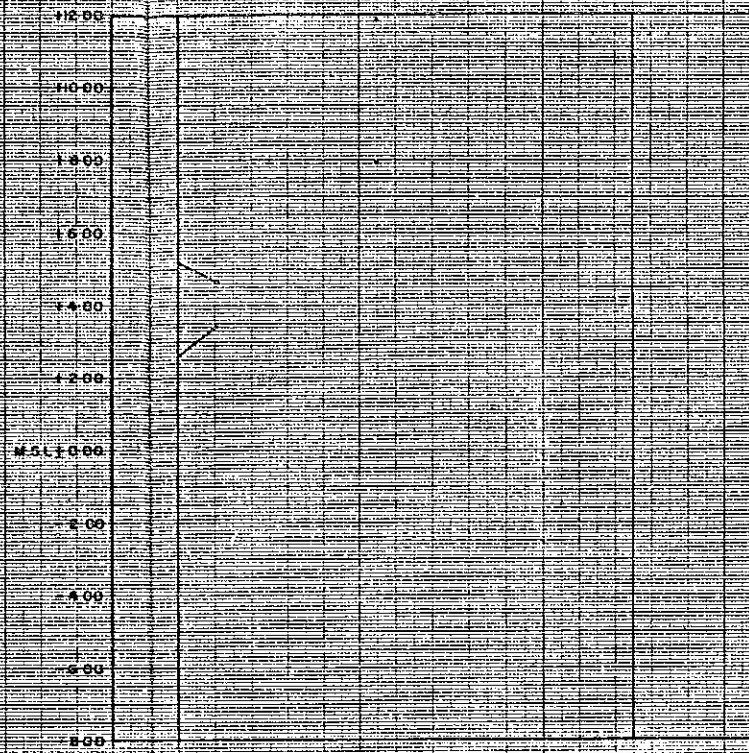 +12.00
+10.00
+8.00
+6.00
+4.00
+2.00
M.S.L ± 0.00
-2.00
-4.00
-6.00
-8.00